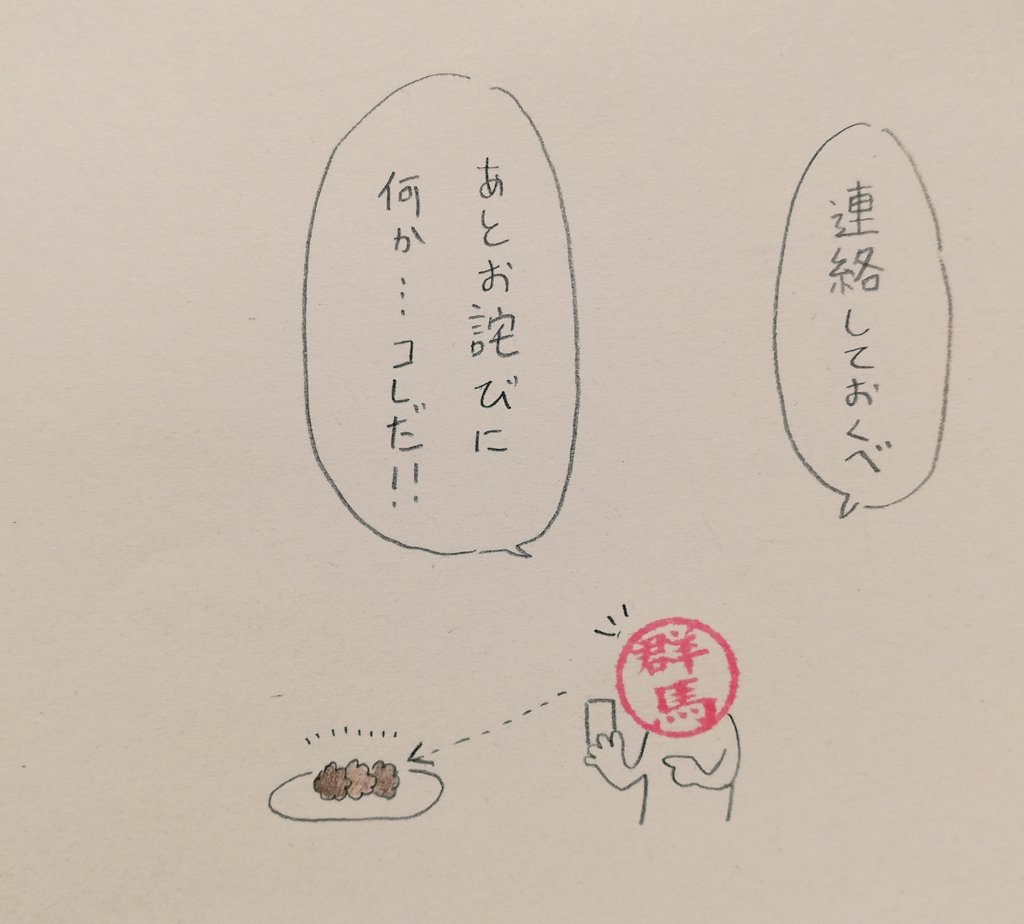 連絡しておくべ
あとお詫びに
何か…コレだ!!
群馬